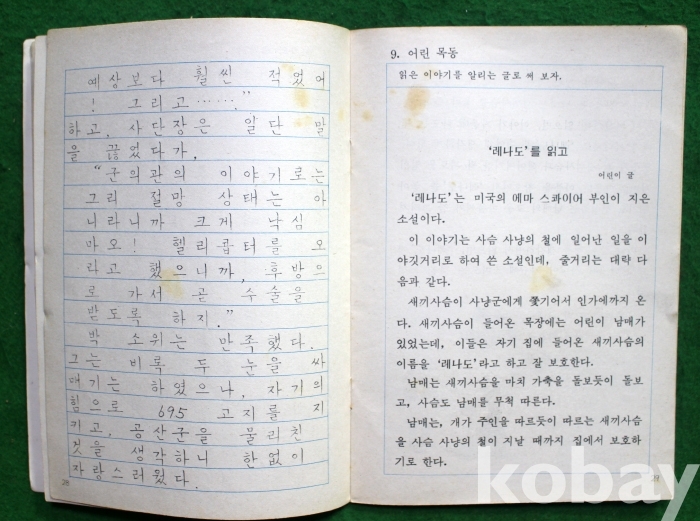 예상보다 훨씬 적었어
! 그리고……."
하고, 사단장은 일단 말
을 끊었다가,
"군의관의 이야기로는
그리 절망 상태는 아
니라니까 크게 낙심
마오! 헬리콥터를 오
라고 했으니까, 후방으
로 가서 곧 수술을
받도록 하지."
박 소위는 만족했다.
그는 비록 두 눈을 싸
매기는 하였으나, 자기의
힘으로 695 고지를 지
키고, 공산군을 물리친
것을 생각하니 한없이
자랑스러웠다.
28
9. 어린 목동
읽은 이야기를 알리는 글로 써 보자.
'레나도'를 읽고
어린이 글
'레나도'는 미국의 메마 스콰이어 부인이 지은
소설이다.
이 이야기는 사슴 사냥의 철에 일어난 일을 이
야깃거리로 하여 쓴 소설인데, 줄거리는 대략 다
음과 같다.
새끼사슴이 사냥군에게 쫓기어서 인가에까지 온
다. 새끼사슴이 들어온 목장에는 어린이 남매가
있었는데, 이들은 자기 집에 들어온 새끼사슴의
이름을 '레나도'라고 하고 잘 보호한다.
남매는 새끼사슴을 마치 가축을 돌보듯이 돌보
고, 사슴도 남매를 무척 따른다.
남매는, 개가 주인을 따르듯이 따르는 새끼사슴
을 사슴 사냥의 철이 지날 때까지 집에서 보호하
기로 한다.
29
kobay